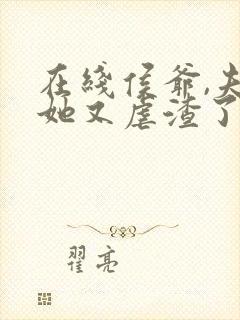 在线侯爷,夫
她又虐渣了
翟亮